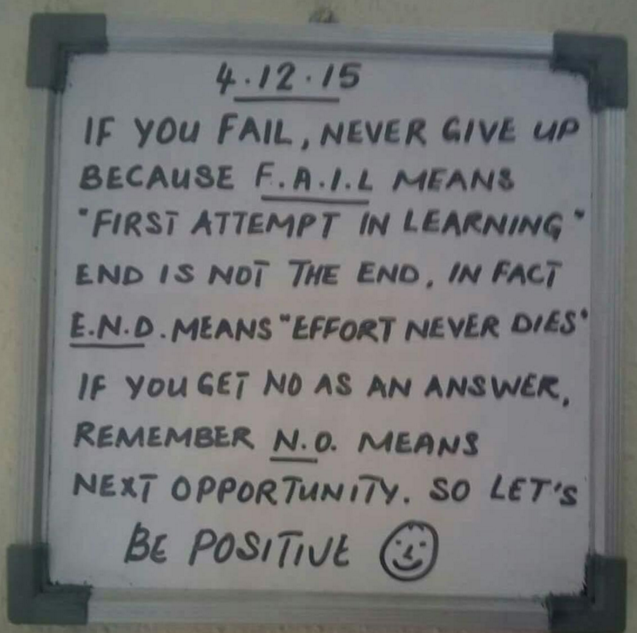 4.12.15
IF YOU FAIL, NEVER GIVE UP
BECAUSE F.A.I.L MEANS
"FIRST ATTEMPT IN LEARNING"
END IS NOT THE END, IN FACT
E.N.D. MEANS "EFFORT NEVER DIES"
IF YOU GET NO AS AN ANSWER,
REMEMBER N.O. MEANS
NEXT OPPORTUNITY. SO LET'S
BE POSITIVE